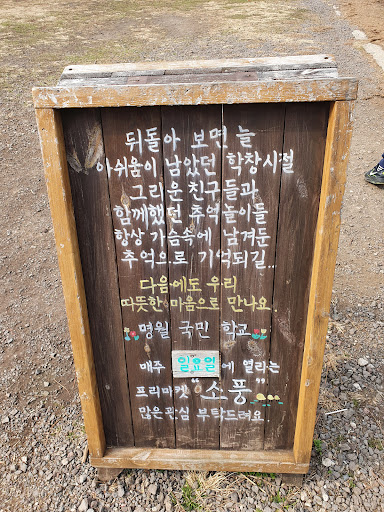 뒤돌아 보면 늘
아쉬움이 남았던 학창시절
그리운 친구들과
함께했던 추억놀이들
항상 가슴속에 남겨둔
추억으로 기억되길...
다음에도 우리
따뜻한 마음으로 만나요.
명월 국민 학교
매주 일요일에 열리는
프리마켓 "소풍"
많은관심 부탁드려요.